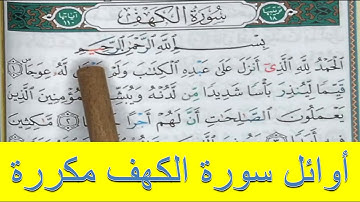 سُورَةُ الكَهْفِ
بِسْمِ اللَّهِ الرَّحْمَٰنِ الرَّحِيمِ
الْحَمْدُ لِلَّهِ الَّذِي أَنزَلَ عَلَىٰ عَبْدِهِ الْكِتَابَ وَلَمْ يَجْعَل لَّهُ عِوَجًا
قَيِّمًا لِّيُنذِرَ بَأْسًا شَدِيدًا مِّن لَّدُنْهُ وَيُبَشِّرَ الْمُؤْمِنِينَ الَّذِينَ
يَعْمَلُونَ الصَّالِحَاتِ أَنَّ لَهُمْ أَجْرًا مَّاكِثِينَ
أوائل سورة الكهف مكررة